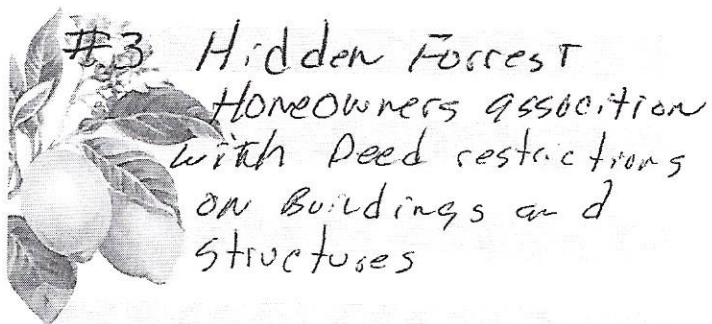 #3 Hidden Forrest
Homeowners assocition
with Deed restrictions
on Buildings and
Structures